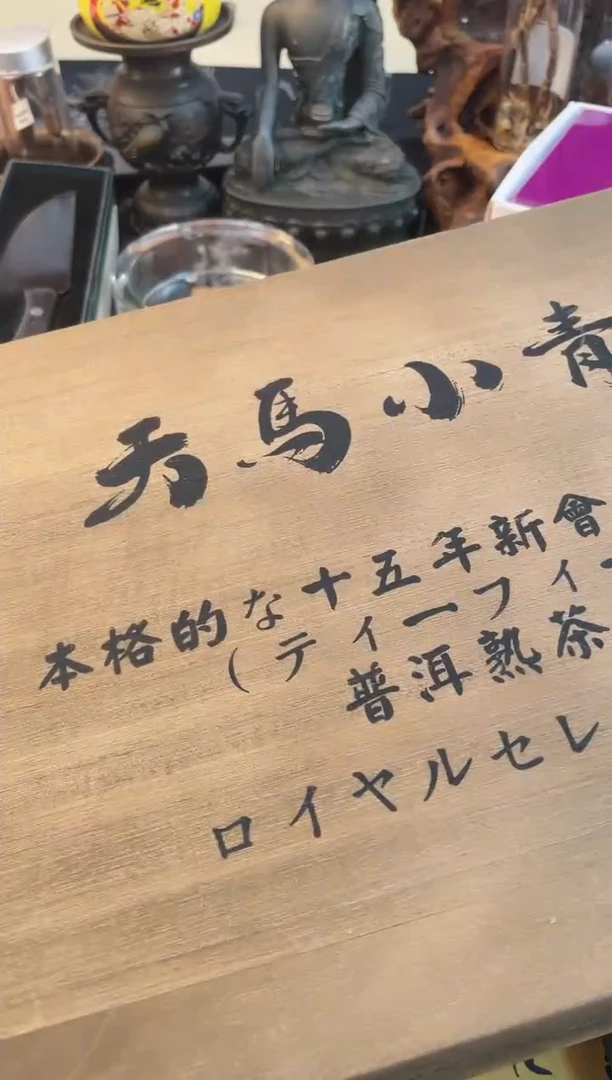 天馬小青
本格的な十五年新會
（ティーフィー
普洱熟茶
ロイヤルセレ